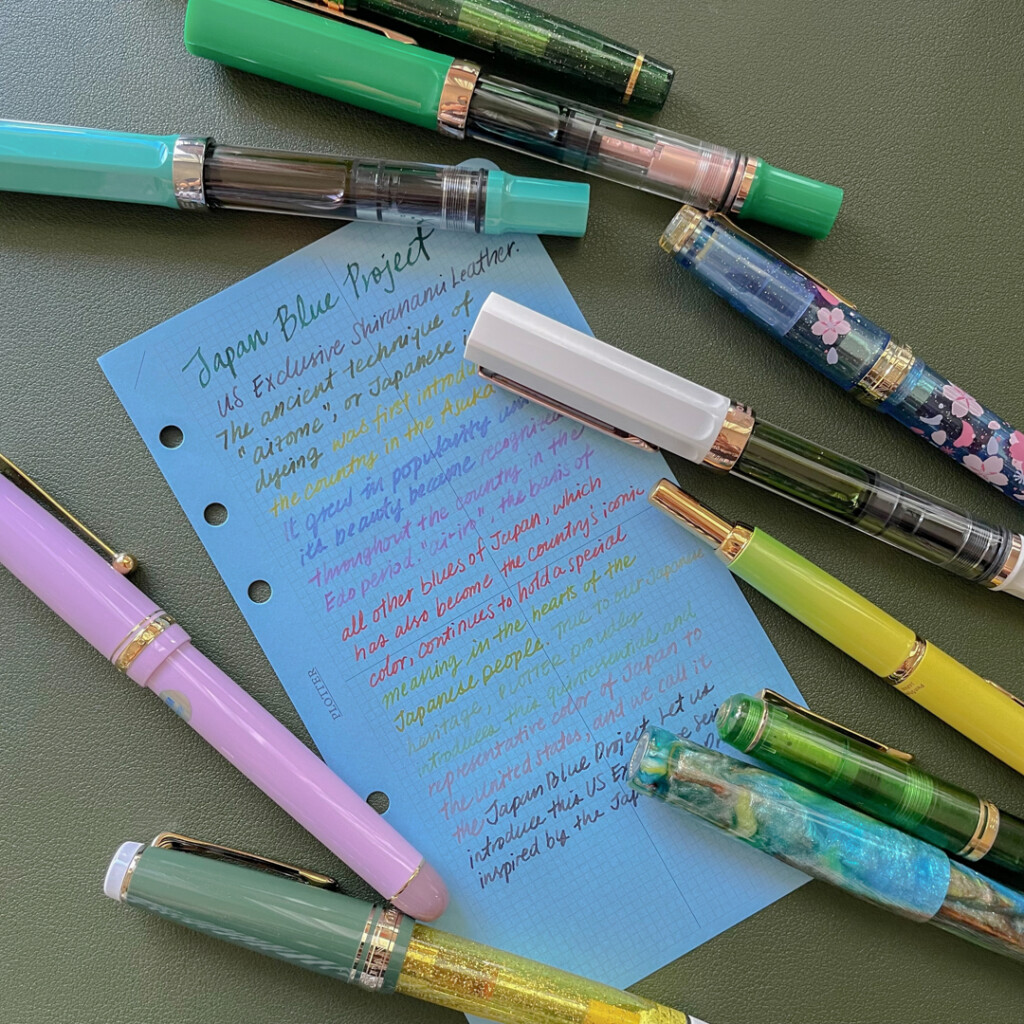 Japan Blue Project
US Exclusive Shiranami Leather.
The ancient technique of
"aizome", or Japanese
dyeing was first introdu
the country in the Asuka
it grew in popularity
its beauty became recognize
throughout the country in the
Edo period. "aizome", the basis of
all other blues of Japan, which
has also become the country's iconic
color, continues to hold a special
meaning in the hearts of the
Japanese people. True to our Japanese
heritage, PLOTTER proudly
introduces this quintessential and
representative color of Japan to
the United States, and we call it
the Japan Blue Project. Let us
introduce this US Ex
inspired by the Jap
PLOTTER